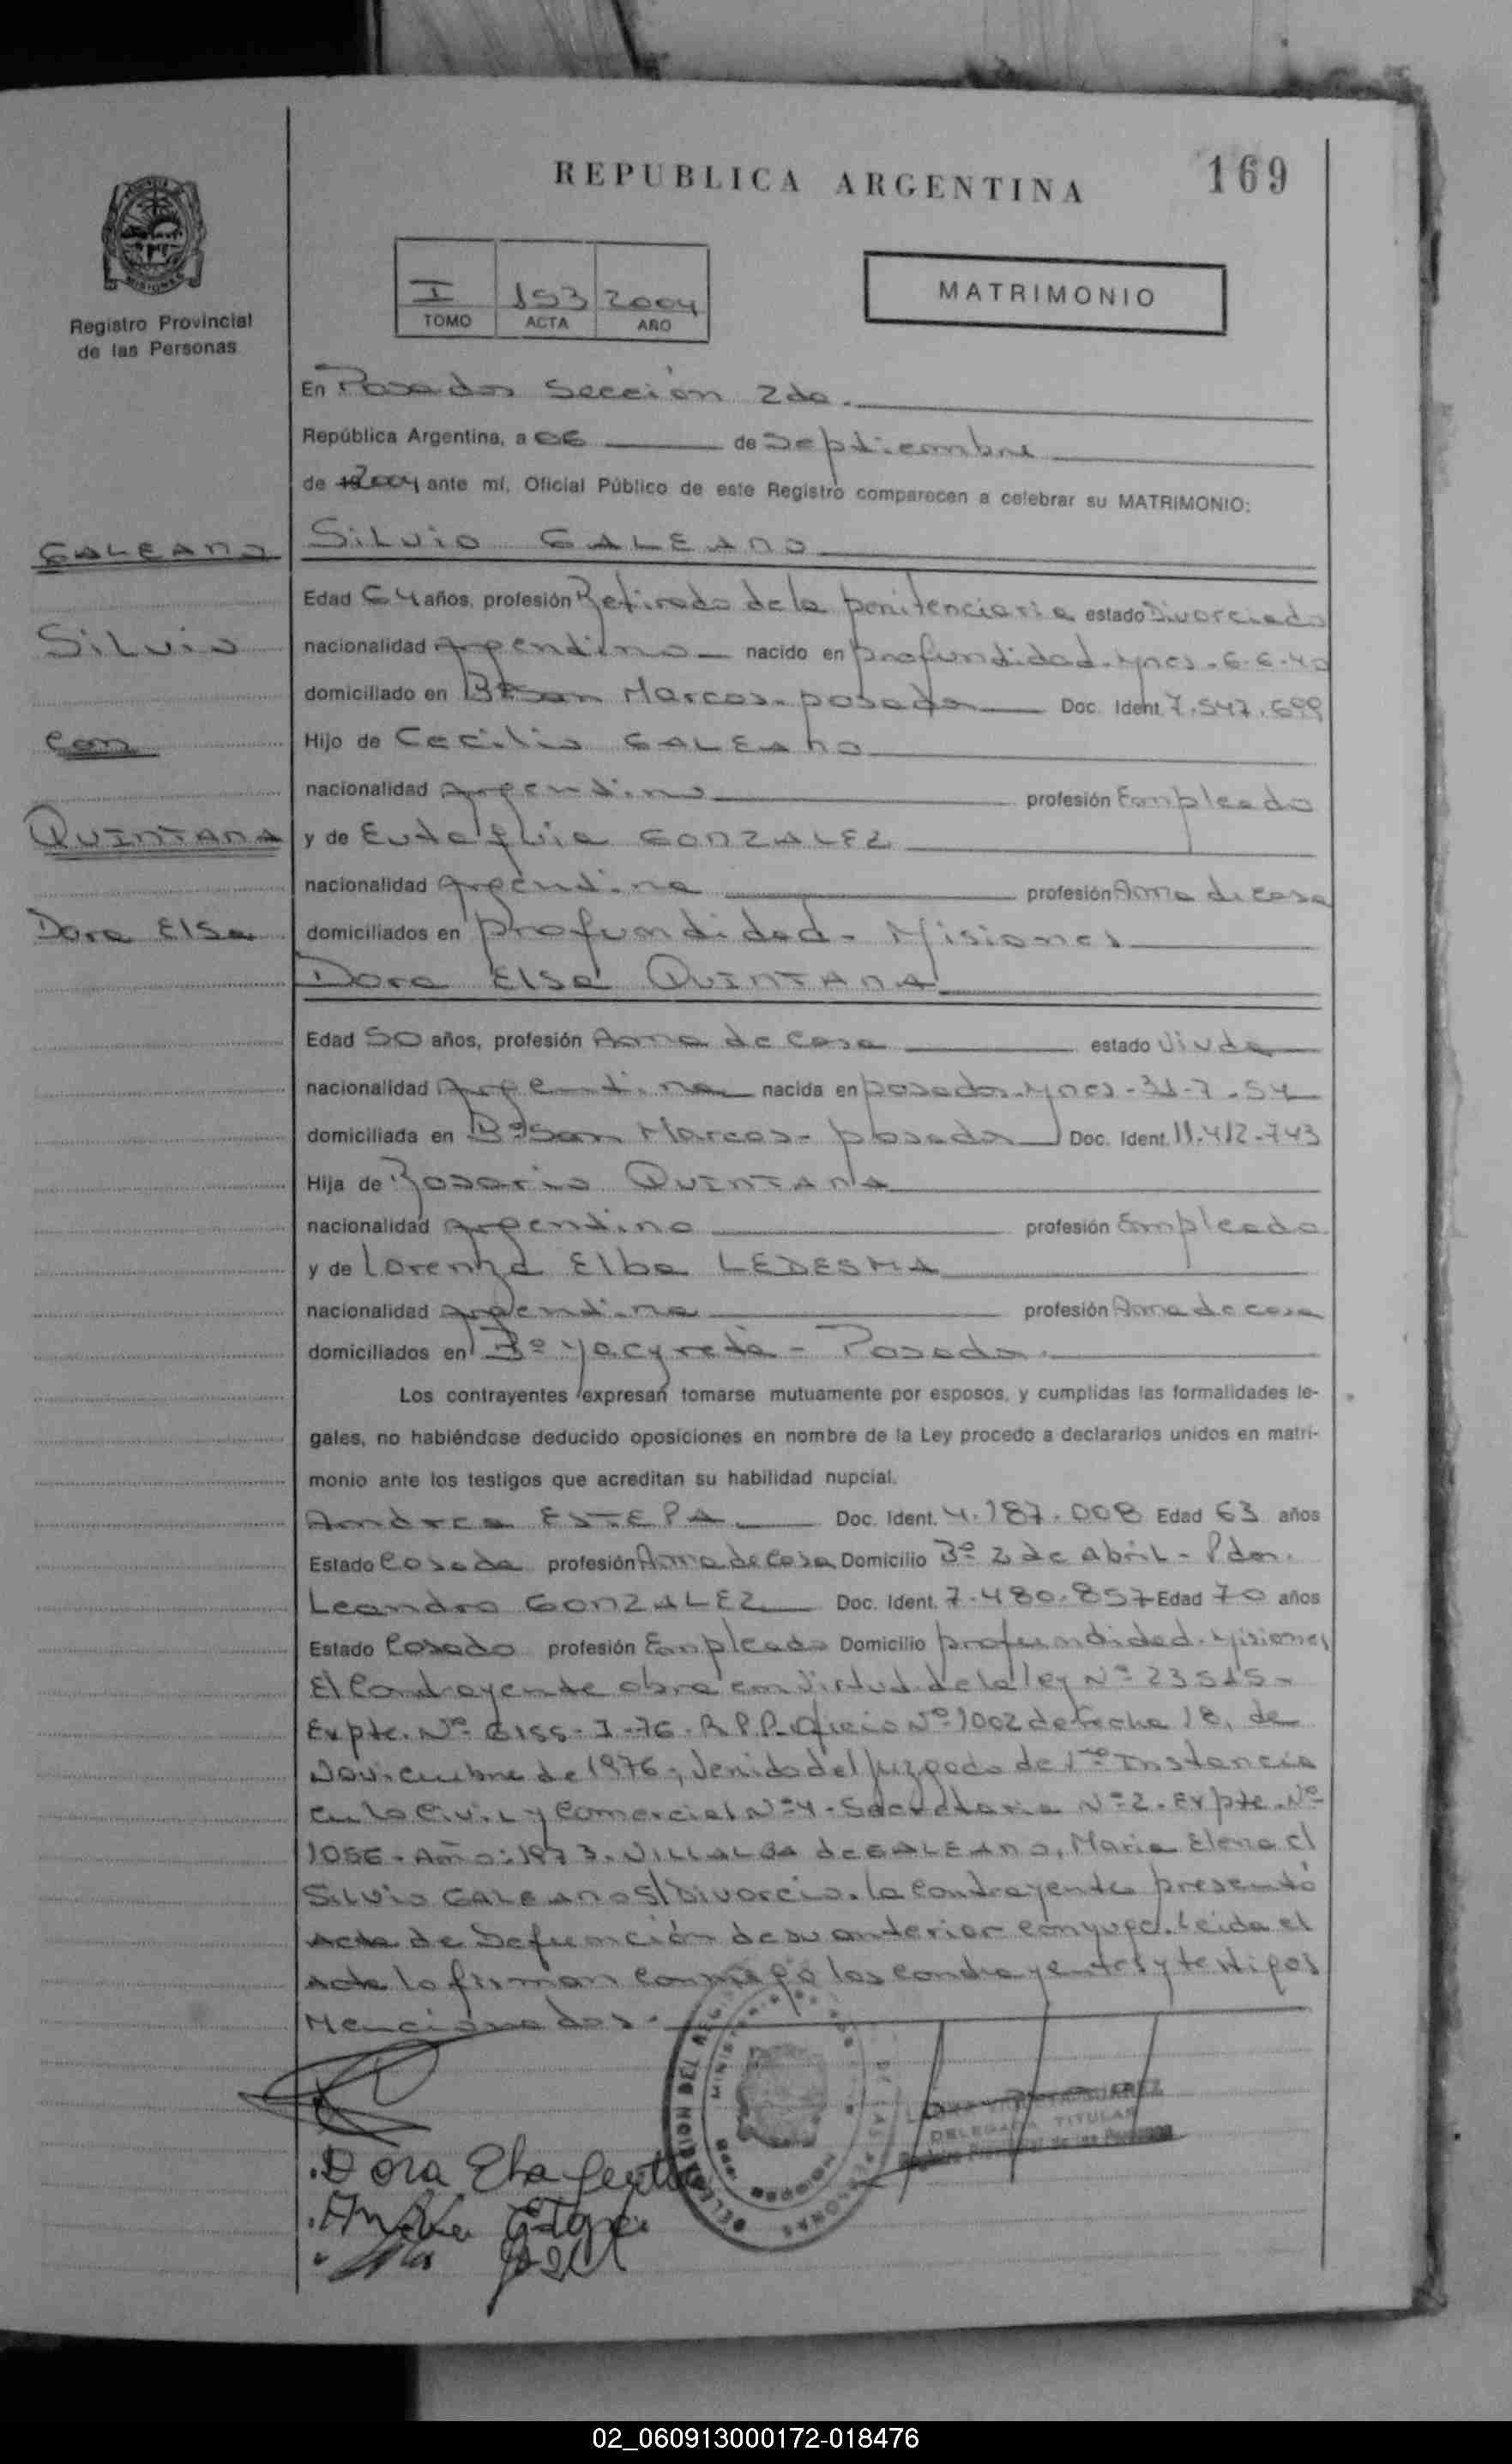 REPUBLICA ARGENTINA
169
MISIONES
Registro Provincial
de las Personas
I 153 2004
TOMO ACTA AÑO
MATRIMONIO
En Posadas Sección 2da.
República Argentina, a 06 de Septiembre
de 2004 ante mí, Oficial Público de este Registro comparecen a celebrar su MATRIMONIO:
GALEANO
Silvio
con
QUINTANA
Dora Elsa
Silvio GALEANO
Edad 64 años, profesión Retirado de la penitenciaria estado Divorciado
nacionalidad Argentino nacido en profundidad. Mnes. 6-6-40
domiciliado en Bº San Marcos - posadas Doc. Ident. 7.547.699
Hijo de Cecilio GALEANO
nacionalidad Argentino profesión Empleado
y de GONZALEZ
nacionalidad Argentina profesión Ama de casa
domiciliados en profundidad - Misiones
Dora Elsa QUINTANA
Edad 50 años, profesión Ama de casa estado Viuda
nacionalidad Argentina nacida en posadas. Mnes - 31-7-54
domiciliada en Bº San Marcos - posadas Doc. Ident. 11.412.743
Hija de Rosario QUINTANA
nacionalidad Argentino profesión Empleado
y de Lorenza Elba LEDESMA
nacionalidad Argentina profesión Ama de casa
domiciliados en Bº Yacyreta - Posadas.
Los contrayentes expresan tomarse mutuamente por esposos, y cumplidas las formalidades le-
gales, no habiéndose deducido oposiciones en nombre de la Ley procedo a declararlos unidos en matri-
monio ante los testigos que acreditan su habilidad nupcial.
Andrea ESTEPA Doc. Ident. 4.187.008 Edad 63 años
Estado Casada profesión Ama de Casa Domicilio Bº 2 de Abril - Pdas.
Leandro GONZALEZ Doc. Ident. 7.480.857 Edad 70 años
Estado Casado profesión Empleado Domicilio profundidad. Misiones
El Contrayente obra en Virtud de la ley Nº 23515-
Expte. Nº 6155-I-76. R.P.P. Oficio Nº 1002 de fecha 18, de
Noviembre de 1976; Venido del Juzgado de 1ra Instancia
en lo Civil y Comercial Nº 4 - Secretaria Nº 2. Expte. Nº
1056 - Año: 1973. VILLALBA de GALEANO, Maria Elena c/
Silvio GALEANO S/ Divorcio. la Contrayente presentó
Acta de Defunción de su anterior cónyuge. Leida el
Acta la firman conmigo los contrayentes y testigos
Mencionados.
DELEGADA TITULAR
Registro Provincial de las Personas
02_060913000172-018476